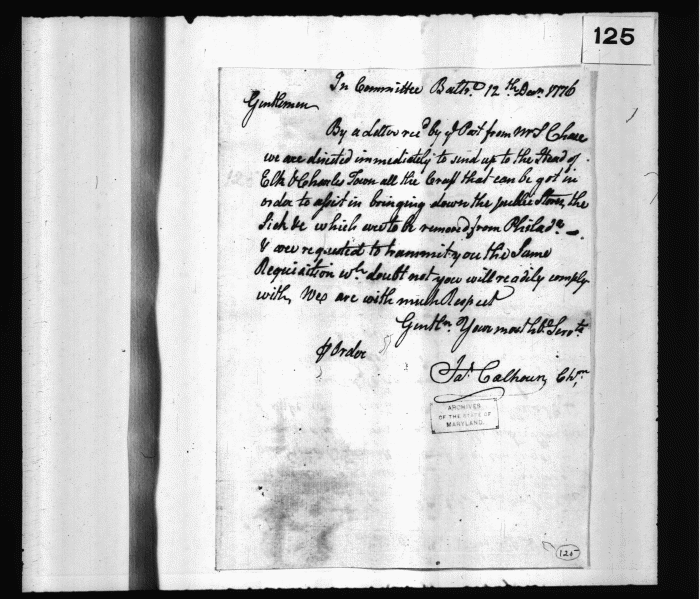 125
In Committee Balto. 12th Decr. 1776
Gentlemen
By a Letter recd by ye Post from Mr S Chase
we are directed immediately to send up to the Head of
Elk & Charles Town all the Craft that can be got in
order to assist in bringing down the public Stores, the
Sick &c which are to be removed from Philada.
& are requested to transmit you the Same
Requisition wh. doubt not you will readily comply
with, We are with much Respect
Gentln. Your most hble Servts.
Order
Jas. Calhoun, Chmn
ARCHIVES
OF THE STATE OF
MARYLAND.
125